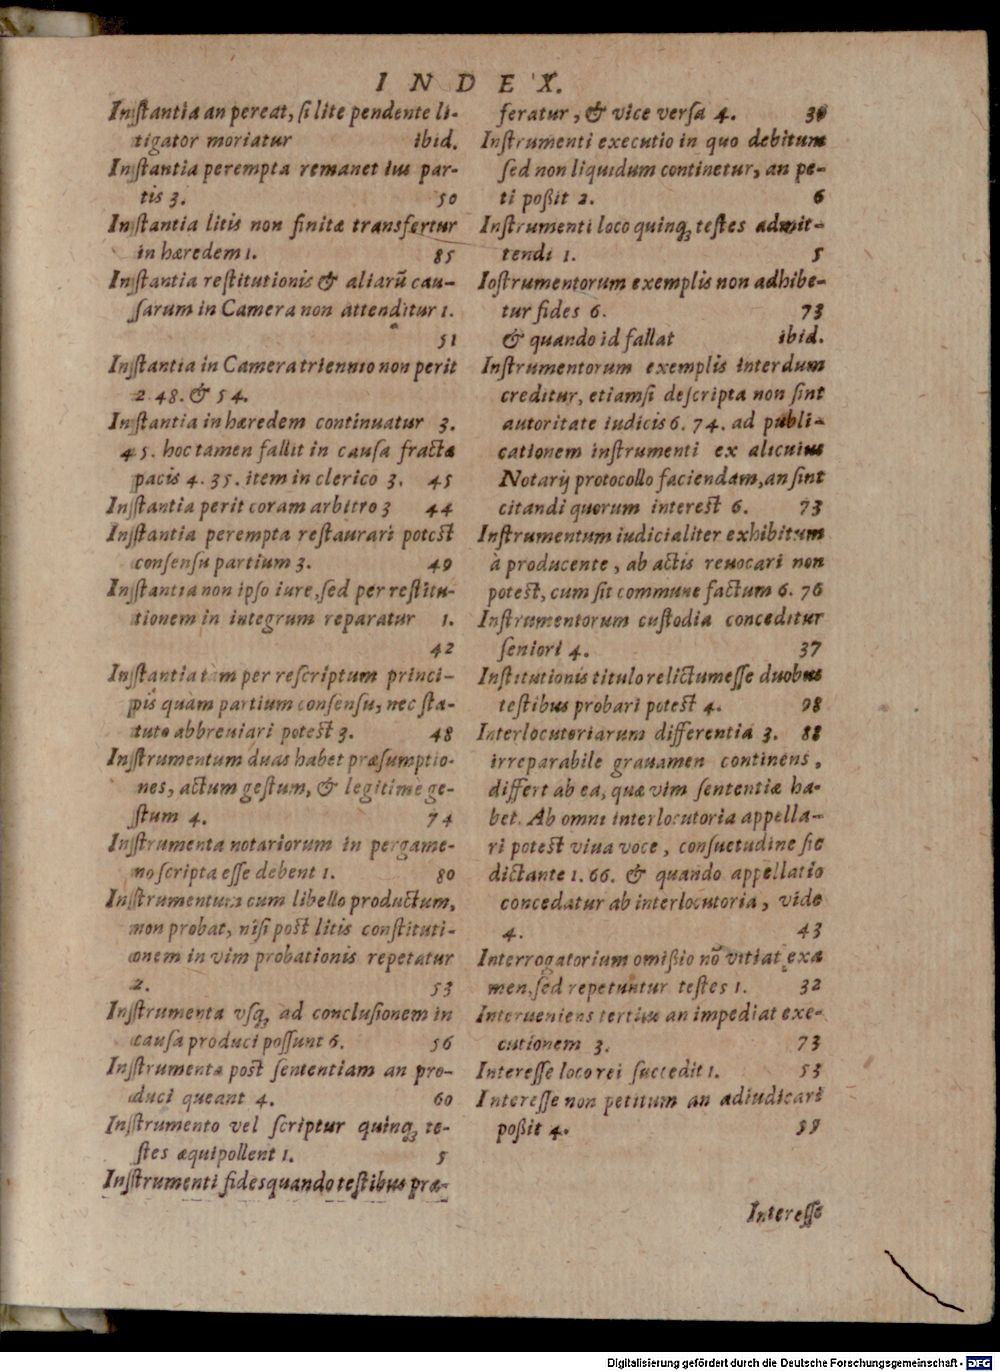 INDEX.
Instantia an pereat, si lite pendente li-
tigator moriatur ibid.
Instantia perempta remanet ius par-
tis 3. 50
Instantia litis non finitæ transfertur
in hæredem 1. 85
Instantia restitutionis & aliarũ cau-
sarum in Camera non attenditur 1.
51
Instantia in Camera triennio non perit
2 48. & 54.
Instantia in hæredem continuatur 3.
45. hoc tamen fallit in causa fractæ
pacis 4. 35. item in clerico 3. 45
Instantia perit coram arbitro 3 44
Instantia perempta restaurari potest
consensu partium 3. 49
Instantia non ipso iure, sed per restitu-
tionem in integrum reparatur 1.
42
Instantia tam per rescriptum princi-
pis quàm partium consensu, nec sta-
tuto abbreuiari potest 3. 48
Instrumentum duas habet præsumptio-
nes, actum gestum, & legitime ge-
stum 4. 74
Instrumenta notariorum in pergame-
no scripta esse debent 1. 80
Instrumentum cum libello productum,
non probat, nisi post litis constituti-
onem in vim probationis repetatur
2. 53
Instrumenta vsq; ad conclusionem in
causa produci possunt 6. 56
Instrumenta post sententiam an pro-
duci queant 4. 60
Instrumento vel scriptur quinq; te-
stes æquipollent 1. 5
Instrumenti fides quando testibus præ-
feratur, & vice versa 4.
Instrumenti executio in quo debitum
sed non liquidum continetur, an pe-
ti poßit 2. 6
Instrumenti loco quinq; testes admit-
tendi 1. 5
Iostrumentorum exemplis non adhibe-
tur fides 6. 73
& quando id fallat ibid.
Instrumentorum exemplis interdum
creditur, etiamsi descripta non sint
autoritate iudicis 6. 74. ad publi-
cationem instrumenti ex alicuius
Notarij protocollo faciendam, an sint
citandi quorum interest 6. 73
Instrumentum iudicialiter exhibitum
à producente, ab actis reuocari non
potest, cum sit commune factum 6. 76
Instrumentorum custodia conceditur
seniori 4. 37
Institutionis titulo relictum esse duobus
testibus probari potest 4. 98
Interlocutoriarum differentia 3. 88
irreparabile grauamen continens,
differt ab ea, quæ vim sententiæ ha-
bet. Ab omni interlocutoria appella-
ri potest viua voce, consuetudine sic
dictante 1. 66. & quando appellatio
concedatur ab interlocutoria, vide
4. 43
Interrogatorium omißio nõ vitiat exa
men, sed repetuntur testes 1. 32
Interueniens tertius an impediat exe-
cutionem 3. 73
Interesse loco rei succedit 1. 53
Interesse non petitum an adiudicari
poßit 4.
Interesse
Digitalisierung gefördert durch die Deutsche Forschungsgemeinschaft - DFG